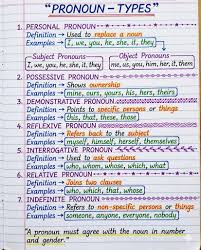 "PRONOUN – TYPES"
1. PERSONAL PRONOUN
Definition → Used to replace a noun
Examples → I, we, you, he, she, it, they
Subject Pronouns
I, we, you, he, she, it, they
Object Pronouns
me, us, you, him, her, it, them
2. POSSESSIVE PRONOUN
Definition → Shows ownership
Examples → mine, ours, yours, his, hers, theirs
3. DEMONSTRATIVE PRONOUN
Definition → Points to specific persons or things
Examples → this, that, these, those
4. REFLEXIVE PRONOUN
Definition → Refers back to the subject
Examples → myself, himself, herself, themselves
5. INTERROGATIVE PRONOUN
Definition → Used to ask questions
Examples → who, whom, whose, which, what
6. RELATIVE PRONOUN
Definition → Joins two clauses
Examples → who, which, that, whose
7. INDEFINITE PRONOUN
Definition → Refers to non-specific persons or things
Examples → someone, anyone, everyone, nobody
"A pronoun must agree with the noun in number
and gender."